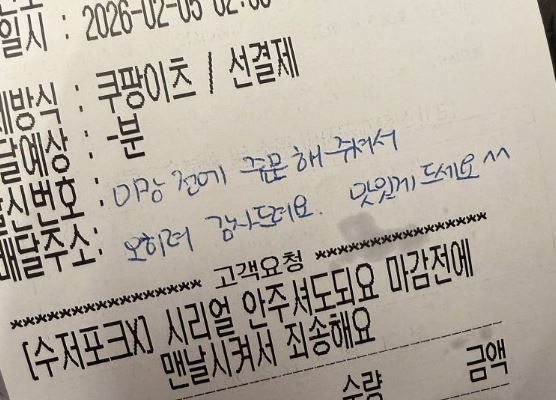 일시 : 2026-02-05 02:
제방식 : 쿠팡이츠 / 선결제
달예상 : -분
신번호 :
마감 전에 주문 해 주셔서
배달주소:
오히려 감사드려요. 맛있게 드세요^^
**************** 고객요청 ****************
[수저포크X] 시리얼 안주셔도되요 마감전에
맨날시켜서 죄송해요
수량 금액